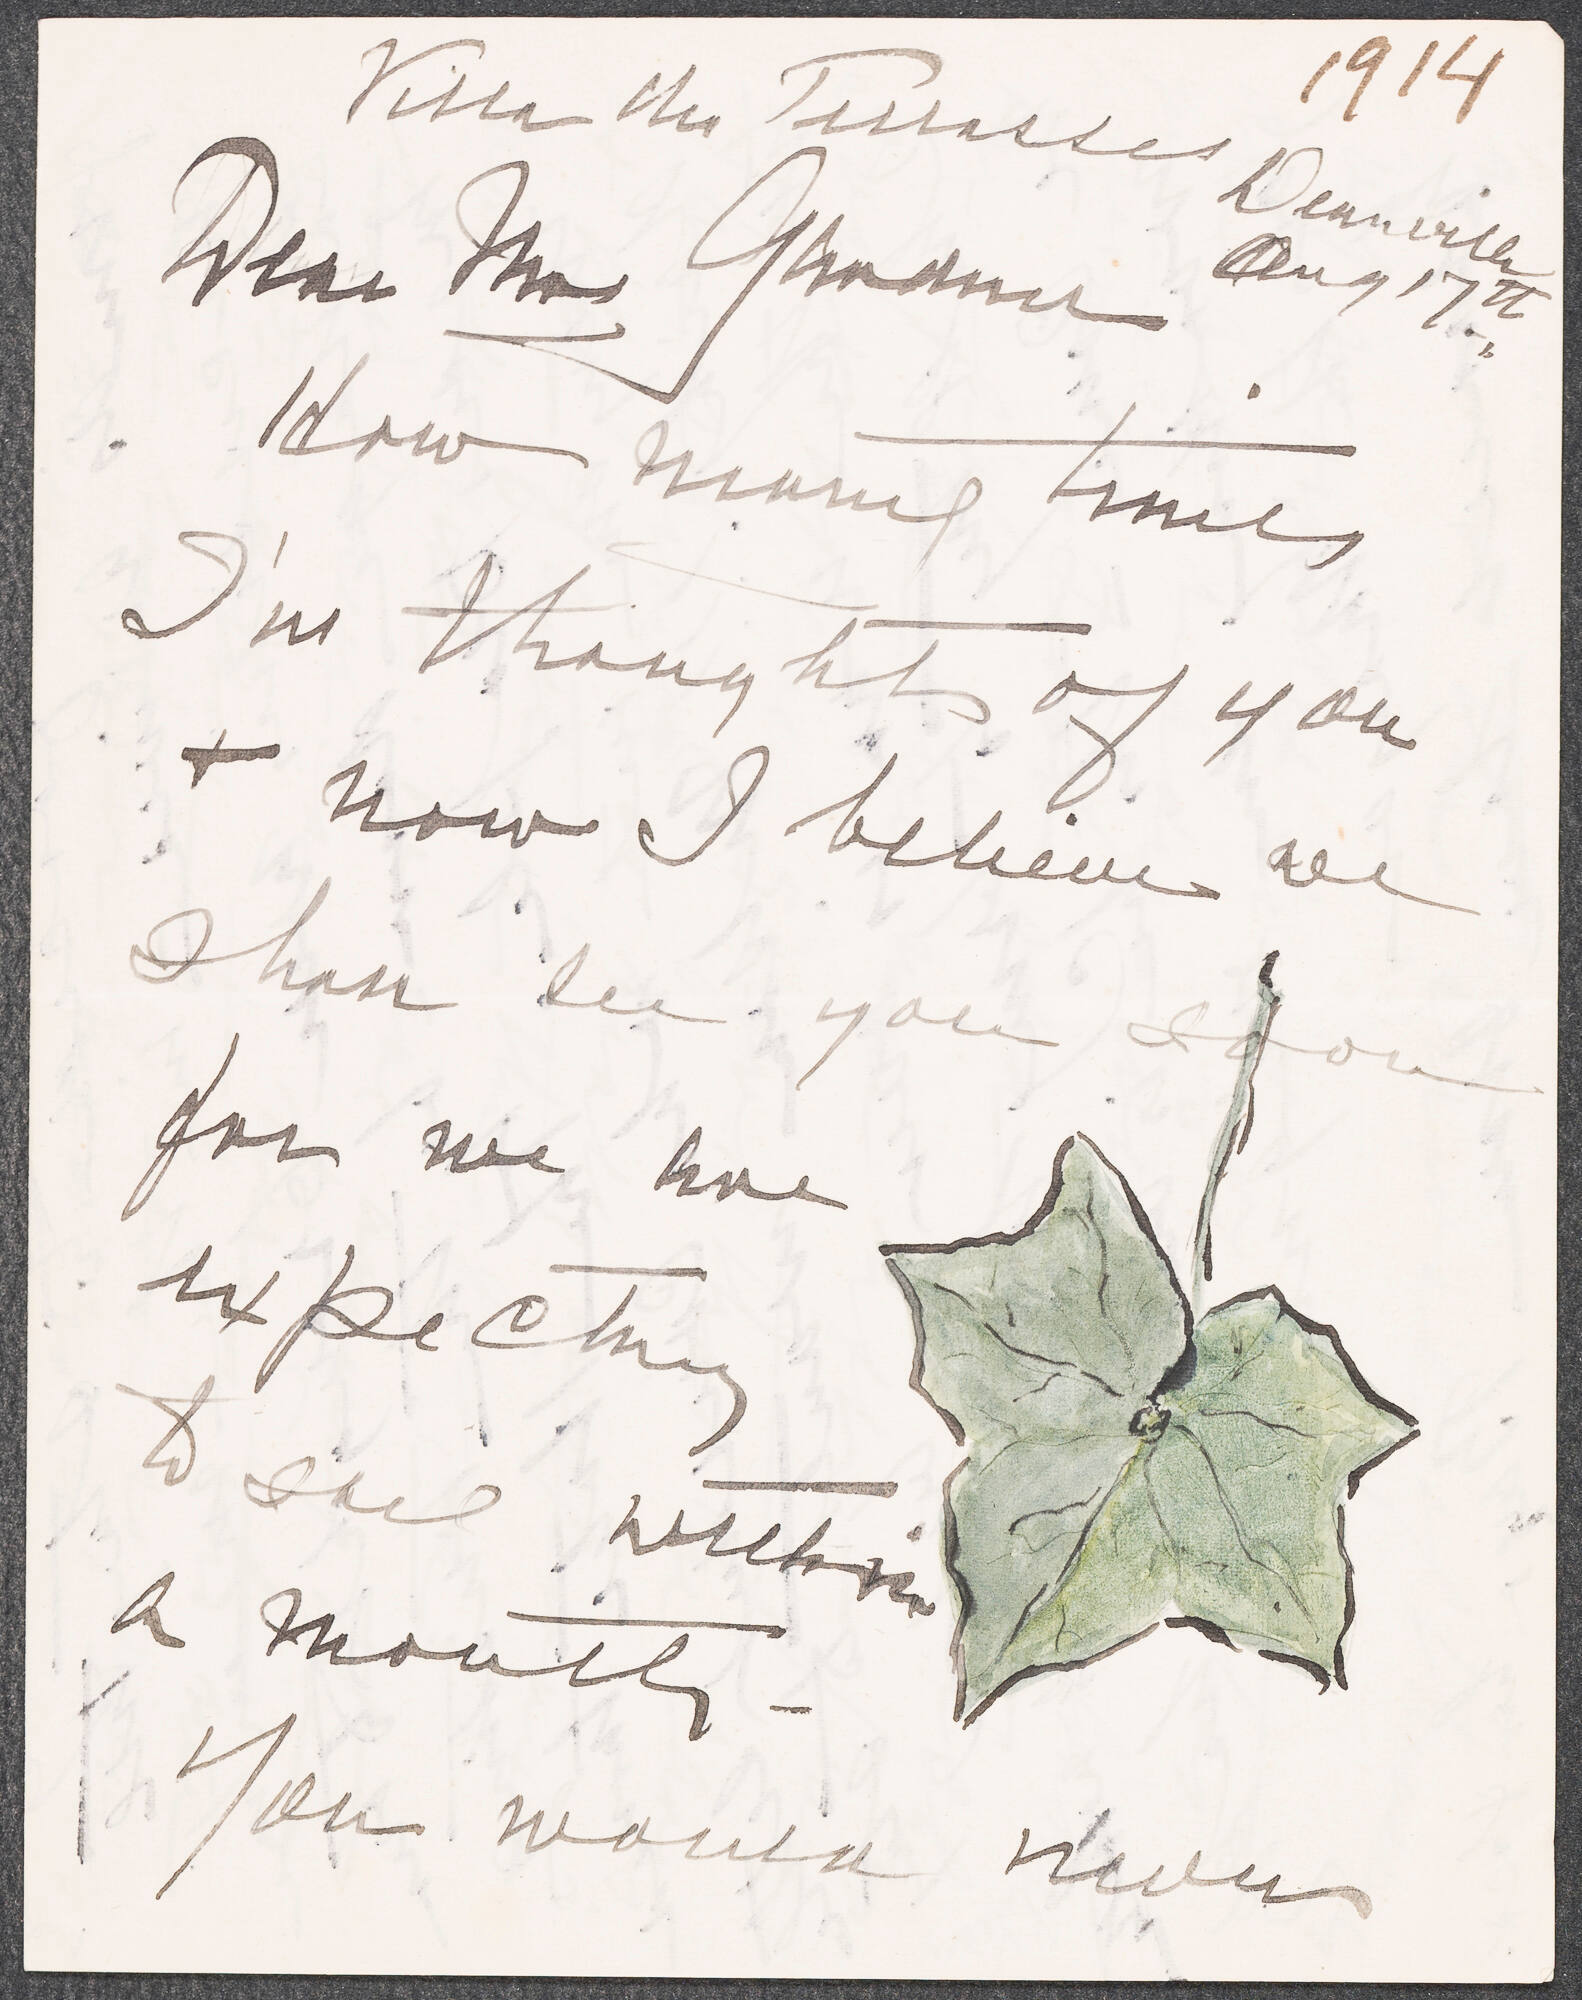 1914
Villa des Terrasses
Deauville
Aug 17th,
Dear Mrs Gardner
How many times
I've thought of you
+ now I believe we
shall see you soon
for we are
expecting
to sail within
a month -
You would never